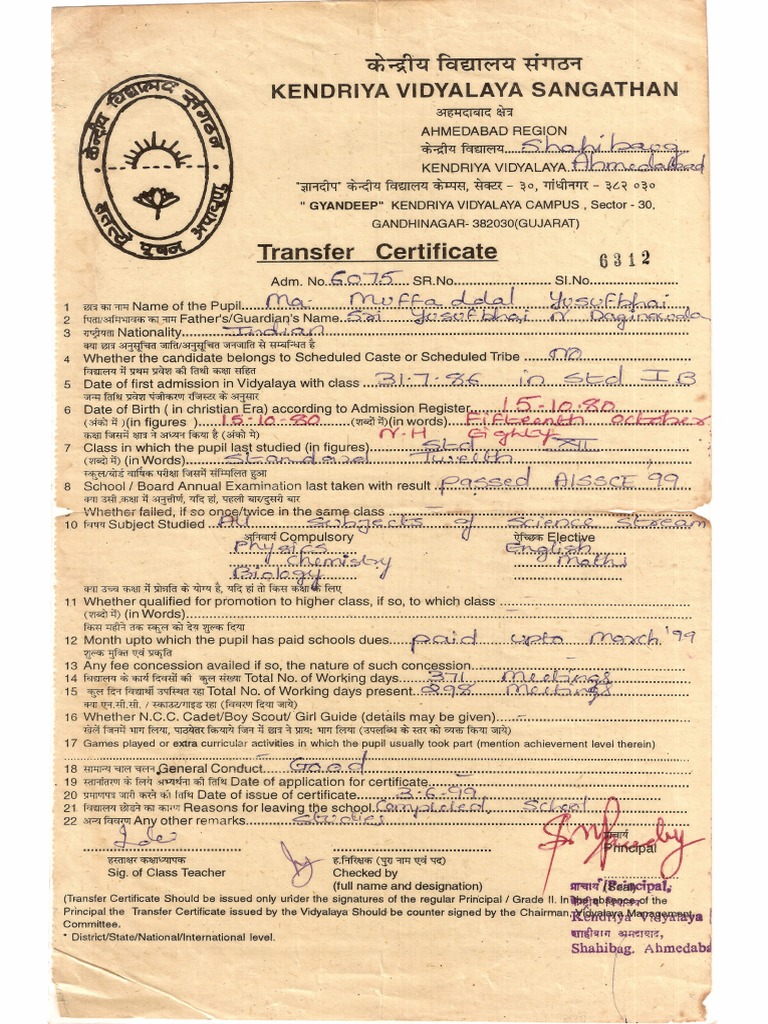 केन्द्रीय विद्यालय संगठन
KENDRIYA VIDYALAYA SANGATHAN
अहमदाबाद क्षेत्र
AHMEDABAD REGION
केन्द्रीय विद्यालय Shahibaag
KENDRIYA VIDYALAYA Ahmedabad
"ज्ञानदीप" केन्द्रीय विद्यालय केम्पस, सेक्टर - ३०, गांधीनगर - ३८२ ०३०
" GYANDEEP" KENDRIYA VIDYALAYA CAMPUS , Sector - 30,
GANDHINAGAR- 382030(GUJARAT)
केन्द्रीय विद्यालय संगठन
Transfer Certificate 6312
Adm. No. 6075 SR.No. Sl.No.
1 छात्र का नाम Name of the Pupil Ma- Muffaddal Yusufbhai
2 पिता/अभिभावक का नाम Father's/Guardian's Name Sri Yusufbhai N Daginawala
3 राष्ट्रीयता Nationality Indian
क्या छात्र अनुसूचित जाति/अनुसूचित जनजाति से सम्बन्धित है
4 Whether the candidate belongs to Scheduled Caste or Scheduled Tribe NO
विद्यालय में प्रथम प्रवेश की तिथी कक्षा सहित
5 Date of first admission in Vidyalaya with class 31-7-86 in Std I B
जन्म तिथि प्रवेश पंजीकरण रजिस्टर के अनुसार
6 Date of Birth ( in christian Era) according to Admission Register 15-10-80
(अंको में )(in figures ) 15-10-80 (शब्दों में)(in words) Fifteenth October
कक्षा जिसमें क्षात्र ने अध्यन किया है (अंको में) N-H Eighty
7 Class in which the pupil last studied (in figures) Std XII
(शब्दो में) (in Words) Standard Twelth
स्कूल/बोर्ड वार्षिक परीक्षा जिसमें सम्मिलित हुआ
8 School / Board Annual Examination last taken with result passed AISSCE '99
क्या उसी कक्षा में अनुत्तीर्ण, यदि हां, पहली बार/दुसरे बार
Whether failed, if so once/twice in the same class
10 विषय Subject Studied All Subjects of Science Stream
अनिवार्य Compulsory ऐच्छिक Elective
Physics English
Chemistry Maths
Biology
क्या उच्च कक्षा में प्रोन्नति के योग्य है, यदि हां तो किस कक्षा के लिए
11 Whether qualified for promotion to higher class, if so, to which class
(शब्दो में) (in Words)
किस महीने तक स्कूल को देय शुल्क दिया
12 Month upto which the pupil has paid schools dues paid upto March '99
शुल्क मुक्ति एवं प्रकृति
13 Any fee concession availed if so, the nature of such concession
14 विद्यालय के कार्य दिवसों की कुल संख्या Total No. of Working days 371 Meetings
15 कुल दिन विद्यार्थी उपस्थित रहा Total No. of Working days present 298 Meetings
क्या एन.सी.सी. / स्काउट/गाइड रहा (विवरण दिया जाये)
16 Whether N.C.C. Cadet/Boy Scout/ Girl Guide (details may be given) -
खेलें जिनमें भाग लिया, पाठयेतर कियाये जिन में छात्र ने प्राय: भाग लिया (उपलब्धि के स्तर को व्यक्त किया जाये)
17 Games played or extra curricular activities in which the pupil usually took part (mention achievement level therein)
18 सामान्य चाल चलन General Conduct Good
19 स्तानांतरण के लिये अभ्यर्थना की तिथि Date of application for certificate
20 प्रमाणपत्र जारी करने की तिथि Date of issue of certificate 3-6-99
21 विद्यालय छोडने का कारण Reasons for leaving the school Completed School
22 अन्य विवरण Any other remarks Studies
प्राचार्य
Principal
हस्ताक्षर कक्षाध्यापक ह.निरिक्षक (पुरा नाम एवं पद)
Sig. of Class Teacher Checked by
(full name and designation) (Seal)
प्राचार्य / Principal,
केन्द्रीय विद्यालय
Kendriya Vidyalaya
शाहीबाग अमदावाद,
Shahibag, Ahmedaba
(Transfer Certificate Should be issued only under the signatures of the regular Principal / Grade II. In the absence of the
Principal the Transfer Certificate issued by the Vidyalaya Should be counter signed by the Chairman, Vidyalaya Management
Committee.
* District/State/National/International level.